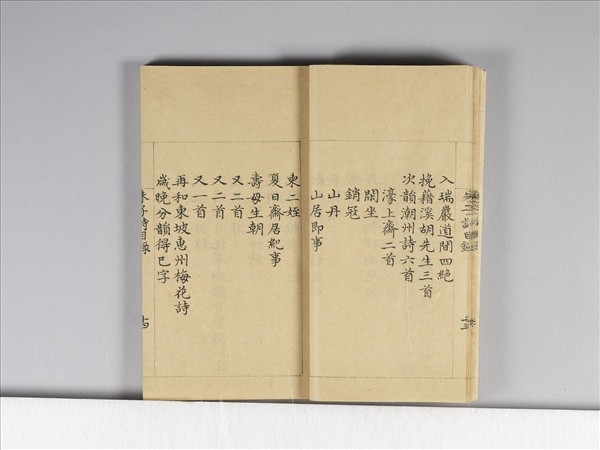 入瑞巖道間四絕
挽藉溪胡先生三首
次韻潮州詩六首
濠上齋二首
閑坐
銷寇
山丹
山居即事
東二姪
夏日齋居紀事
壽母生朝
又二首
又二首
又一首
再和東坡惠州梅花詩
歲晚分韻得已字
朱子詩目錄
十四